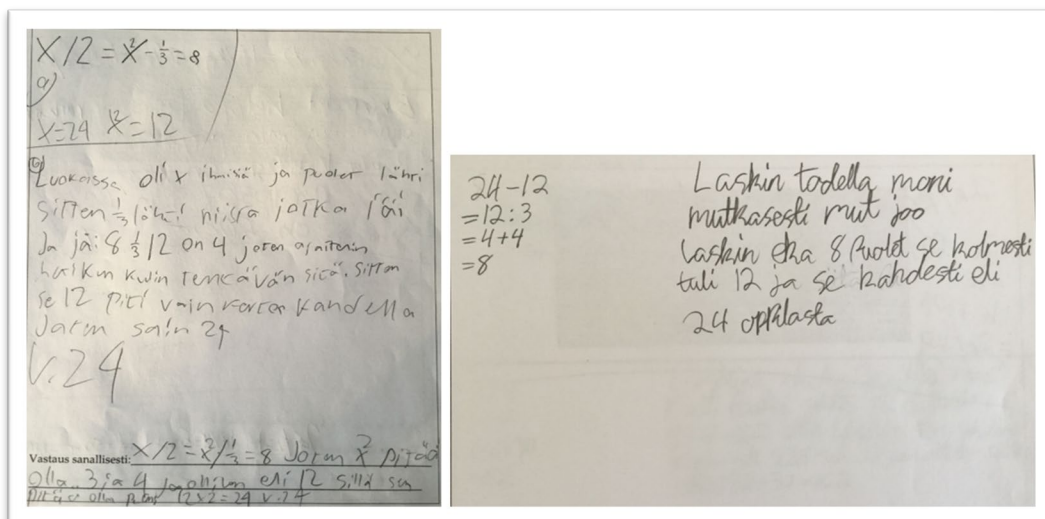 X/2 = X² - 1/3 = 8
a)
X=24 X²=12
b) Luokassa oli x ihmisiä ja puolet lähti
Sitten 1/3 lähti niistä jotka jäi
Ja jäi 8 1/3 12 on 4 joten ajattelin
se 12 piti vain kertoa kahdella
Jaten sain 24
V. 24
Vastaus sanallisesti: X/2 = X²/ 1/3 = 8 Joten X² pitää
olla 3 ja 4 jaollinen eli 12 sillä sen
pitää olla 12x2=24 v.24
24-12
=12:3
=4+4
=8
Laskin todella moni
mutkasesti mut joo
Laskin eka 8 Puolet se kolmesti
tuli 12 ja se kahdesti eli
24 oppilasta